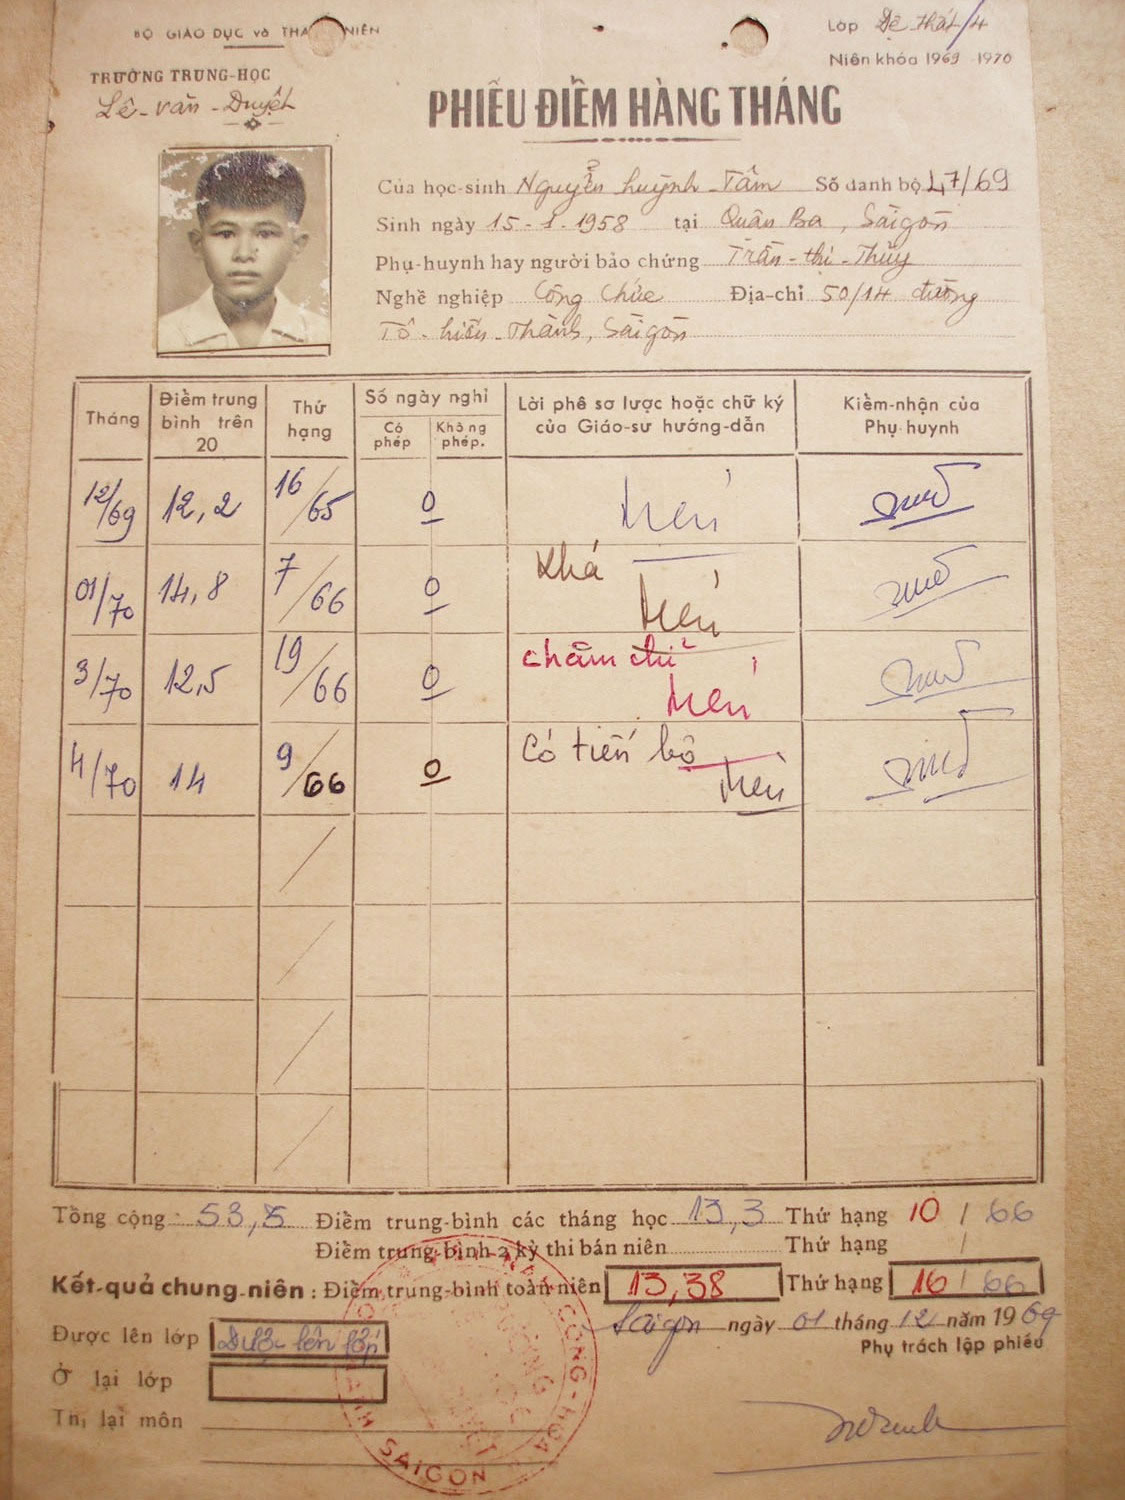 BỘ GIÁO DỤC và THANH NIÊN
TRƯỜNG TRUNG-HỌC
Lê-văn-Duyệt
Lớp Đệ thất/4
Niên khóa 1969-1970
PHIẾU ĐIỂM HÀNG THÁNG
Của học-sinh Nguyễn huỳnh-Tâm Số danh bộ 47/69
Sinh ngày 15-1-1958 tại Quận Ba, Sàigòn
Phụ-huynh hay người bảo chứng Trần-thị-Thủy
Nghề nghiệp Công Chức Địa-chỉ 50/14 đường
Tô-hiến-Thành, Sàigòn
Tháng
Điểm trung bình trên 20
Thứ hạng
Số ngày nghỉ
Có phép
Không phép.
Lời phê sơ lược hoặc chữ ký của Giáo-sư hướng-dẫn
Kiểm-nhận của Phụ-huynh
12/69 12,2 16/65 0
01/70 14,8 7/66 0 Khá
3/70 12,5 19/66 0 chăm chỉ
4/70 14 9/66 0 Có tiến bộ
Tổng cộng 53,5 Điểm trung-bình các tháng học 13,3 Thứ hạng 10/66
Điểm trung-bình 2 kỳ thi bán niên Thứ hạng /
Kết-quả chung-niên : Điểm trung-bình toàn niên 13,38 Thứ hạng 16/66
Saigon ngày 01 tháng 12 năm 1969
Được lên lớp Được lên lớp
Phụ trách lập phiếu
Ở lại lớp
Thi lại môn
SAIGON